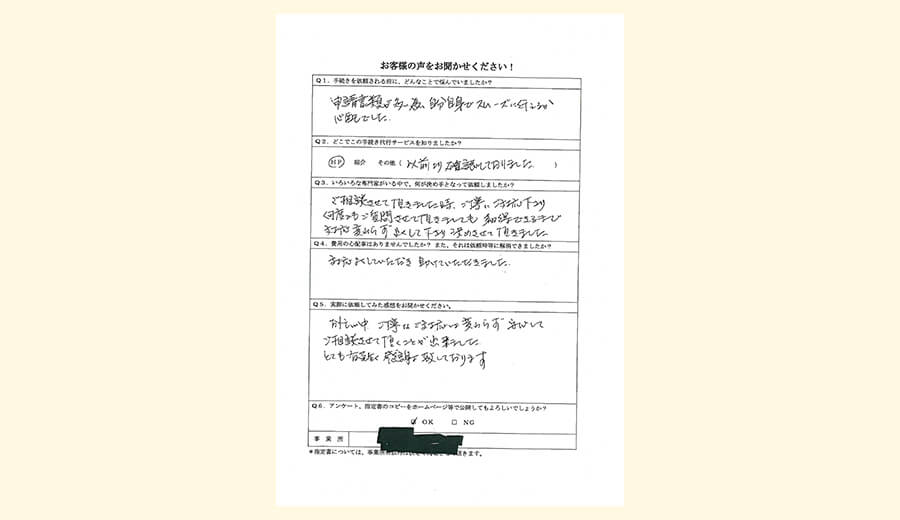 お客様の声をお聞かせください！
Q1．手続きを依頼される前に、どんなことで悩んでいましたか？
申請書類が多い為、自分自身がスムーズに行えるか
心配でした。
Q2．どこでこの手続き代行サービスを知りましたか？
HP 紹介 その他（以前より確認しておりました。）
Q3．いろいろな専門家がいる中で、何が決め手となって依頼しましたか？
ご相談させて頂きました時、ご丁寧に ご対応下さり
何度もご質問させて頂きましても 納得できるまで
対応 変わらず して下さり 決めさせて頂きました。
Q4．費用の心配事はありませんでしたか？ また、それは依頼時等に解消できましたか？
対応していただき 助けていただきました。
Q5．実際に依頼してみた感想をお聞かせください。
お忙しい中 ご丁寧に ご対応は 変わらず 安心して
ご相談させて頂くことが出来ました。
とても 感謝 致しております
Q6．アンケート、指定書のコピーをホームページ等で公開してもよろしいでしょうか？
☑ OK □ NG
事業所
＊指定書については、事業所